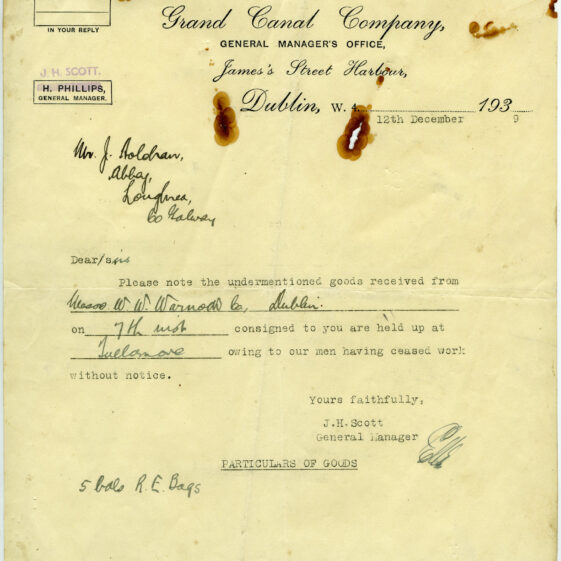 IN YOUR REPLY
Grand Canal Company,
GENERAL MANAGER'S OFFICE,
James's Street Harbour,
J. H. SCOTT.
H. PHILLIPS,
GENERAL MANAGER.
Dublin, W. 4. 193 9
12th December
Mr. J. Holdran,
Abbey,
Loughrea,
Co Galway
Dear/sirs
Please note the undermentioned goods received from
Messrs W. W. Co, Dublin.
on 7th inst consigned to you are held up at
Tullamore owing to our men having ceased work
without notice.
Yours faithfully,
J.H.Scott
General Manager
PARTICULARS OF GOODS
5 bals R. E. Bags